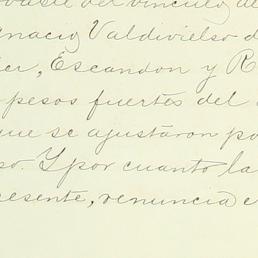 del vínculo de
gnacio Valdivielso d
ier, Escandon y R
pesos fuertes del
que se ajustaron po
so. Y por cuanto la
resente, renuncia e